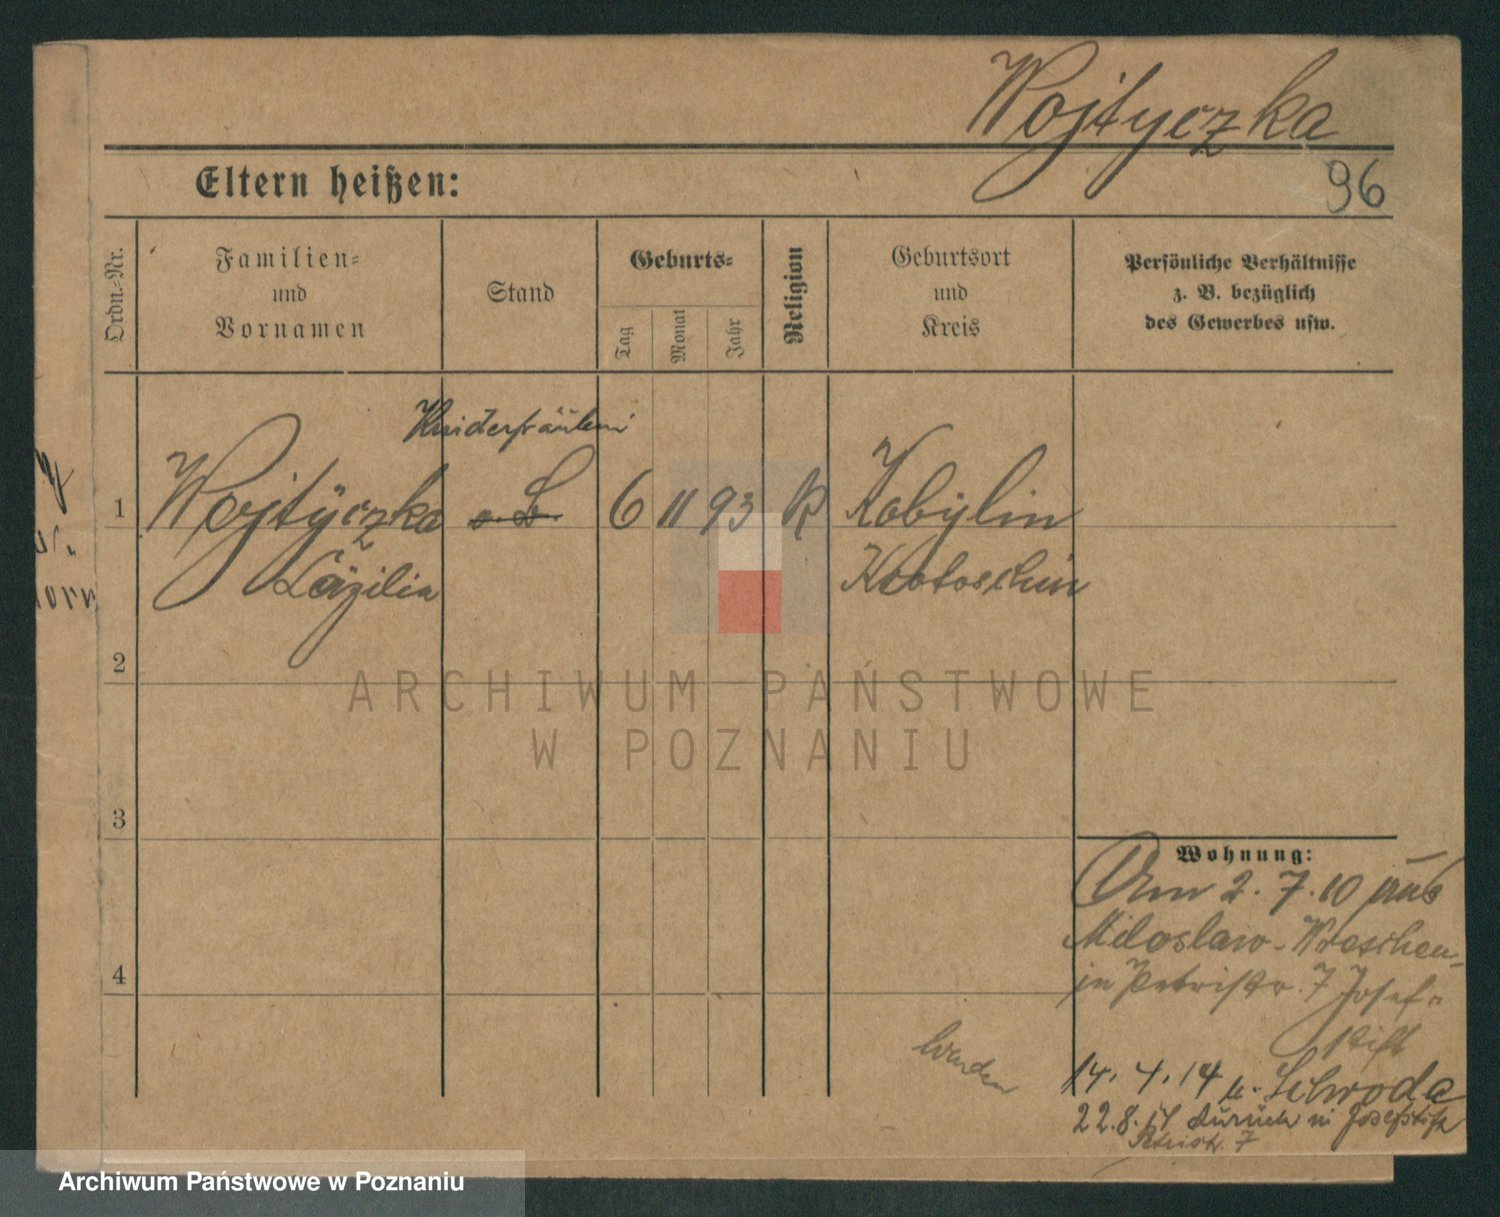 Wojtyczka
96
Eltern heißen:
Ordn.-Nr.
Familien-
und
Vornamen
Stand
Geburts-
Tag
Monat
Jahr
Religion
Geburtsort
und
Kreis
Persönliche Verhältnisse
z. B. bezüglich
des Gewerbes usw.
Kinderfräulein
1
Wojtyczka
6 11 93 K
Kobylin
Cäzilia
Krotoschin
2
ARCHIWUM PAŃSTWOWE
W POZNANIU
3
Wohnung:
Am 2. 7. 10 aus
Miloslaw - Wreschen
in Petristr. 7 Josef-
stift
4
14. 4. 14 n. Schroda
22.8.14 zurück in Josefstift
Petristr. 7
Archiwum Państwowe w Poznaniu